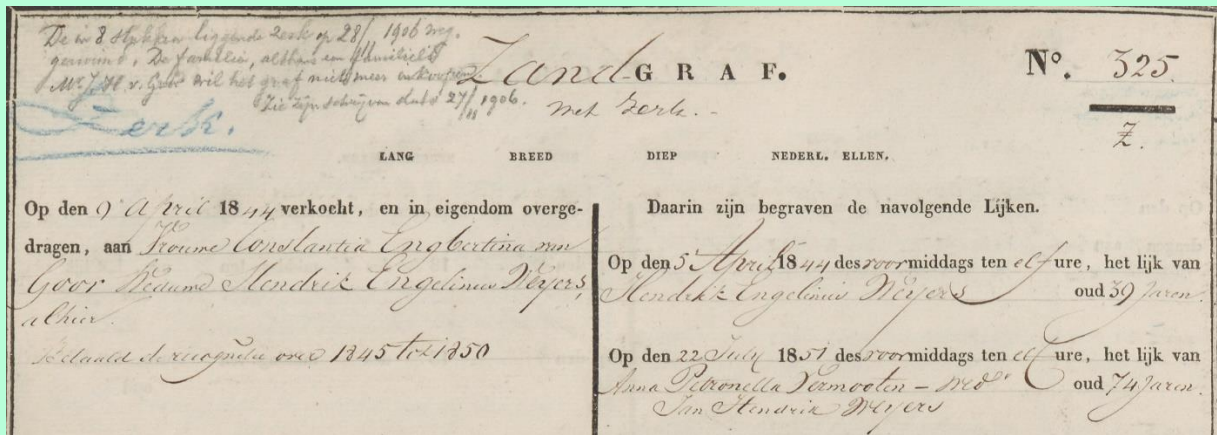 De in 8 stukken liggende zerk op 28/11 1906 weg.
geruimd. De familie, althans een familielid
Mr. J. H. v. Goor wil het graf niet meer inkoopen.
Zie zijn schrijven dato 27/11 1906.
Zerk.
Zand-GRAF.
met zerk. -
No. 325.
Z.
LANG BREED DIEP NEDERL. ELLEN.
Op den 9 April 1844 verkocht, en in eigendom overge-
dragen, aan Vrouwe Constantia Engbertina van
Goor Weduwe Hendrik Engelinus Weyers,
alhier.
Betaald de recognitie over 1845 tot 1850
Daarin zijn begraven de navolgende Lijken.
Op den 5 April 1844 des voormiddags ten elf ure, het lijk van
Hendrik Engelinus Weyers oud 39 Jaren.
Op den 22 July 1851 des voormiddags ten elf ure, het lijk van
Anna Petronella Vermooten - wed oud 74 Jaren.
Jan Hendrik Weyers